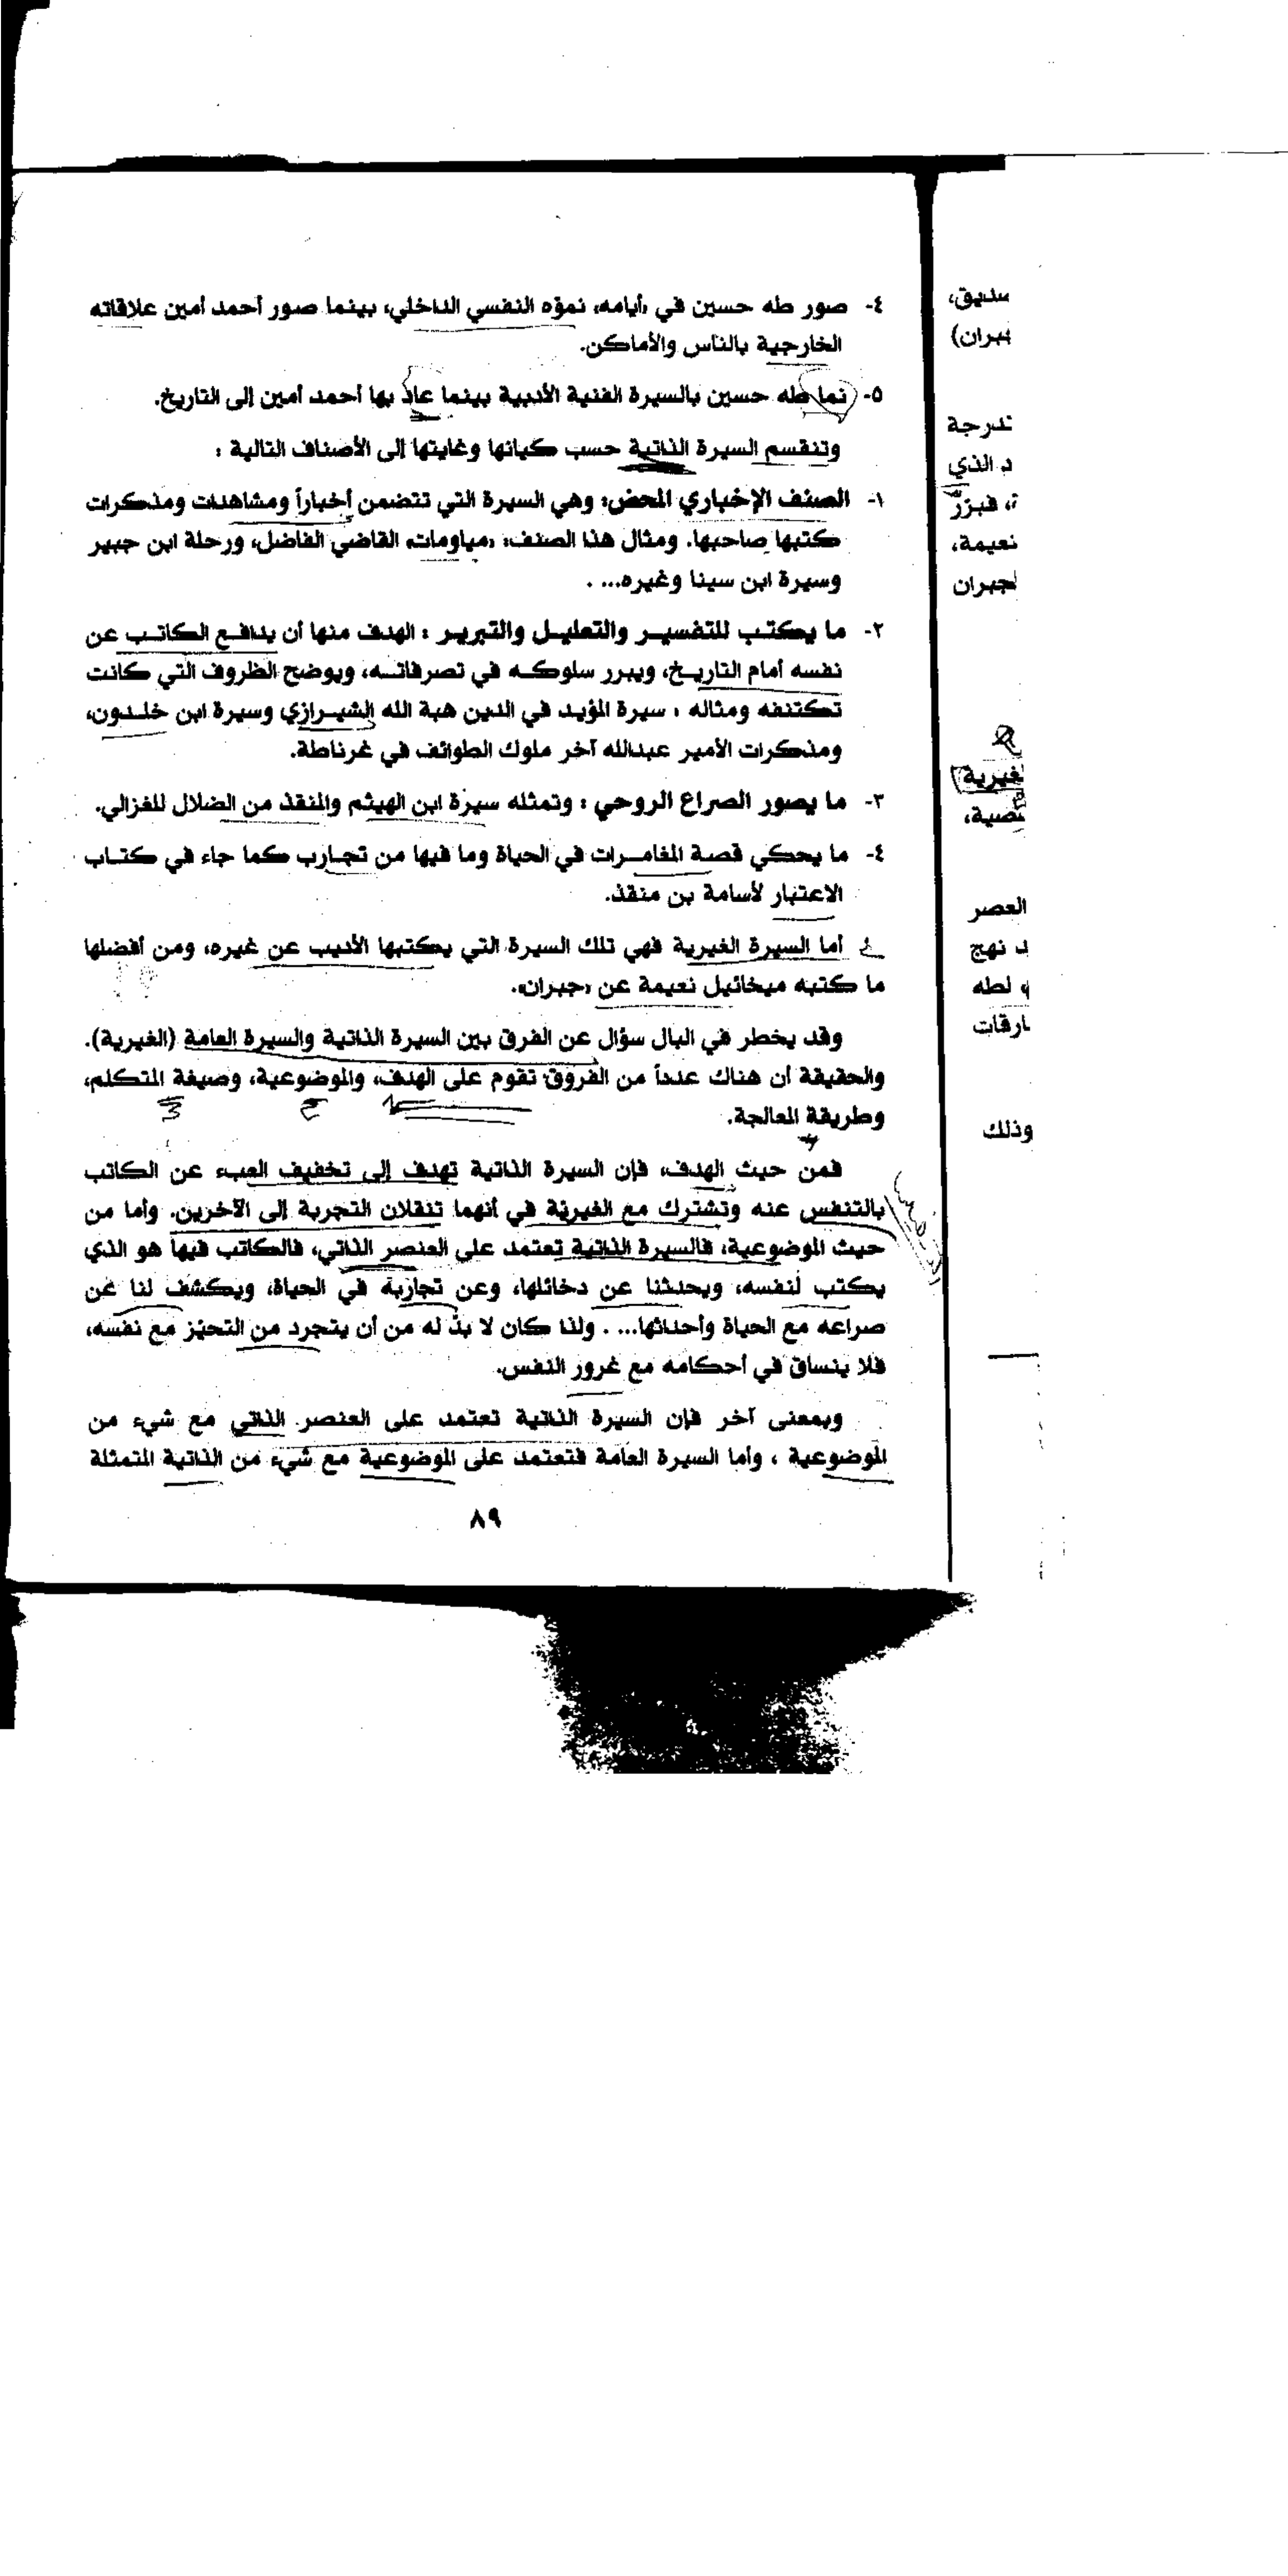 ٤- صور طه حسين في «أيامه» نموّه النفسي الداخلي، بينما صور أحمد أمين علاقاته
الخارجية بالناس والأماكن.
٥- نما طه حسين بالسيرة الفنية الأدبية بينما عاد بها أحمد أمين إلى التاريخ.
وتنقسم السيرة الذاتية حسب كيانها وغايتها إلى الأصناف التالية :
١- الصنف الإخباري المحض: وهي السيرة التي تتضمن أخباراً ومشاهدات ومذكرات
كتبها صاحبها. ومثال هذا الصنف: «مياومات» القاضي الفاضل، ورحلة ابن جبير
وسيرة ابن سينا وغيره... .
٢- ما يكتب للتفسير والتعليل والتبرير : الهدف منها أن يدافع الكاتب عن
نفسه أمام التاريخ، ويبرر سلوكه في تصرفاته، ويوضح الظروف التي كانت
تكتنفه ومثاله : سيرة المؤيد في الدين هبة الله الشيرازي وسيرة ابن خلدون،
ومذكرات الأمير عبدالله آخر ملوك الطوائف في غرناطة.
٣- ما يصور الصراع الروحي : وتمثله سيرة ابن الهيثم والمنقذ من الضلال للغزالي.
٤- ما يحكي قصة المغامرات في الحياة وما فيها من تجارب كما جاء في كتاب
الاعتبار لأسامة بن منقذ.
أما السيرة الغيرية فهي تلك السيرة التي يكتبها الأديب عن غيره، ومن أفضلها
ما كتبه ميخائيل نعيمة عن «جبران».
وقد يخطر في البال سؤال عن الفرق بين السيرة الذاتية والسيرة العامة (الغيرية).
والحقيقة أن هناك عدداً من الفروق تقوم على الهدف، والموضوعية، وصيغة المتكلم،
وطريقة المعالجة.
فمن حيث الهدف، فإن السيرة الذاتية تهدف إلى تخفيف العبء عن الكاتب
بالتنفس عنه وتشترك مع الغيريّة في أنهما تنقلان التجربة إلى الآخرين. وأما من
حيث الموضوعية، فالسيرة الذاتية تعتمد على العنصر الذاتي، فالكاتب فيها هو الذي
يكتب لنفسه، ويحدثنا عن دخائلها، وعن تجاربه في الحياة، ويكشف لنا عن
صراعه مع الحياة وأحداثها... . ولذا كان لا بدّ له من أن يتجرد من التحيّز مع نفسه،
فلا ينساق في أحكامه مع غرور النفس.
وبمعنى آخر فإن السيرة الذاتية تعتمد على العنصر الذاتي مع شيء من
الموضوعية ، وأما السيرة العامة فتعتمد على الموضوعية مع شيء من الذاتية المتمثلة
٨٩
تدرجة
د الذي
نعيمة،
لجبران
العصر
د نهج
لطه
وذلك